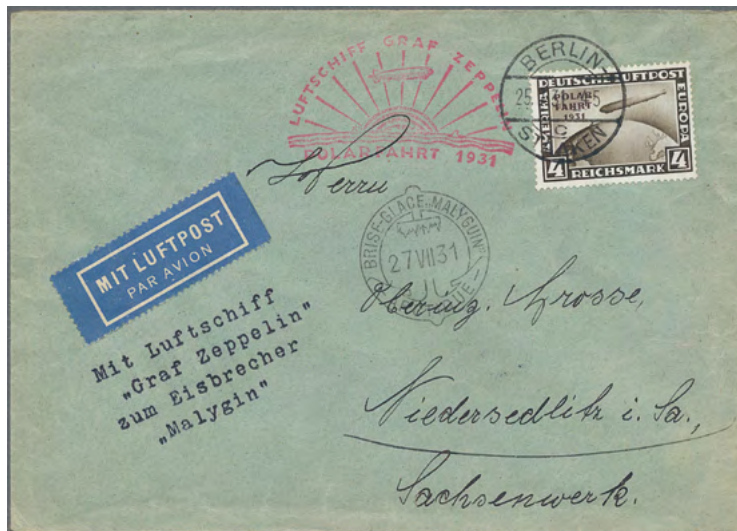 LUFTSCHIFF GRAF ZEPPELIN
POLARFAHRT 1931
BERLIN-
25
5
C
STAAKEN
DEUTSCHE LUFTPOST
POLAR
FAHRT
1931
EUROPA
4 REICHSMARK 4
Herrn
BRISE-GLACE „MALYGUIN"
27 VII 31
MIT LUFTPOST
PAR AVION
Mit Luftschiff
„Graf Zeppelin"
zum Eisbrecher
„Malygin"
Obering. Grosse,
Niedersedlitz i. Sa.,
Sachsenwerk.